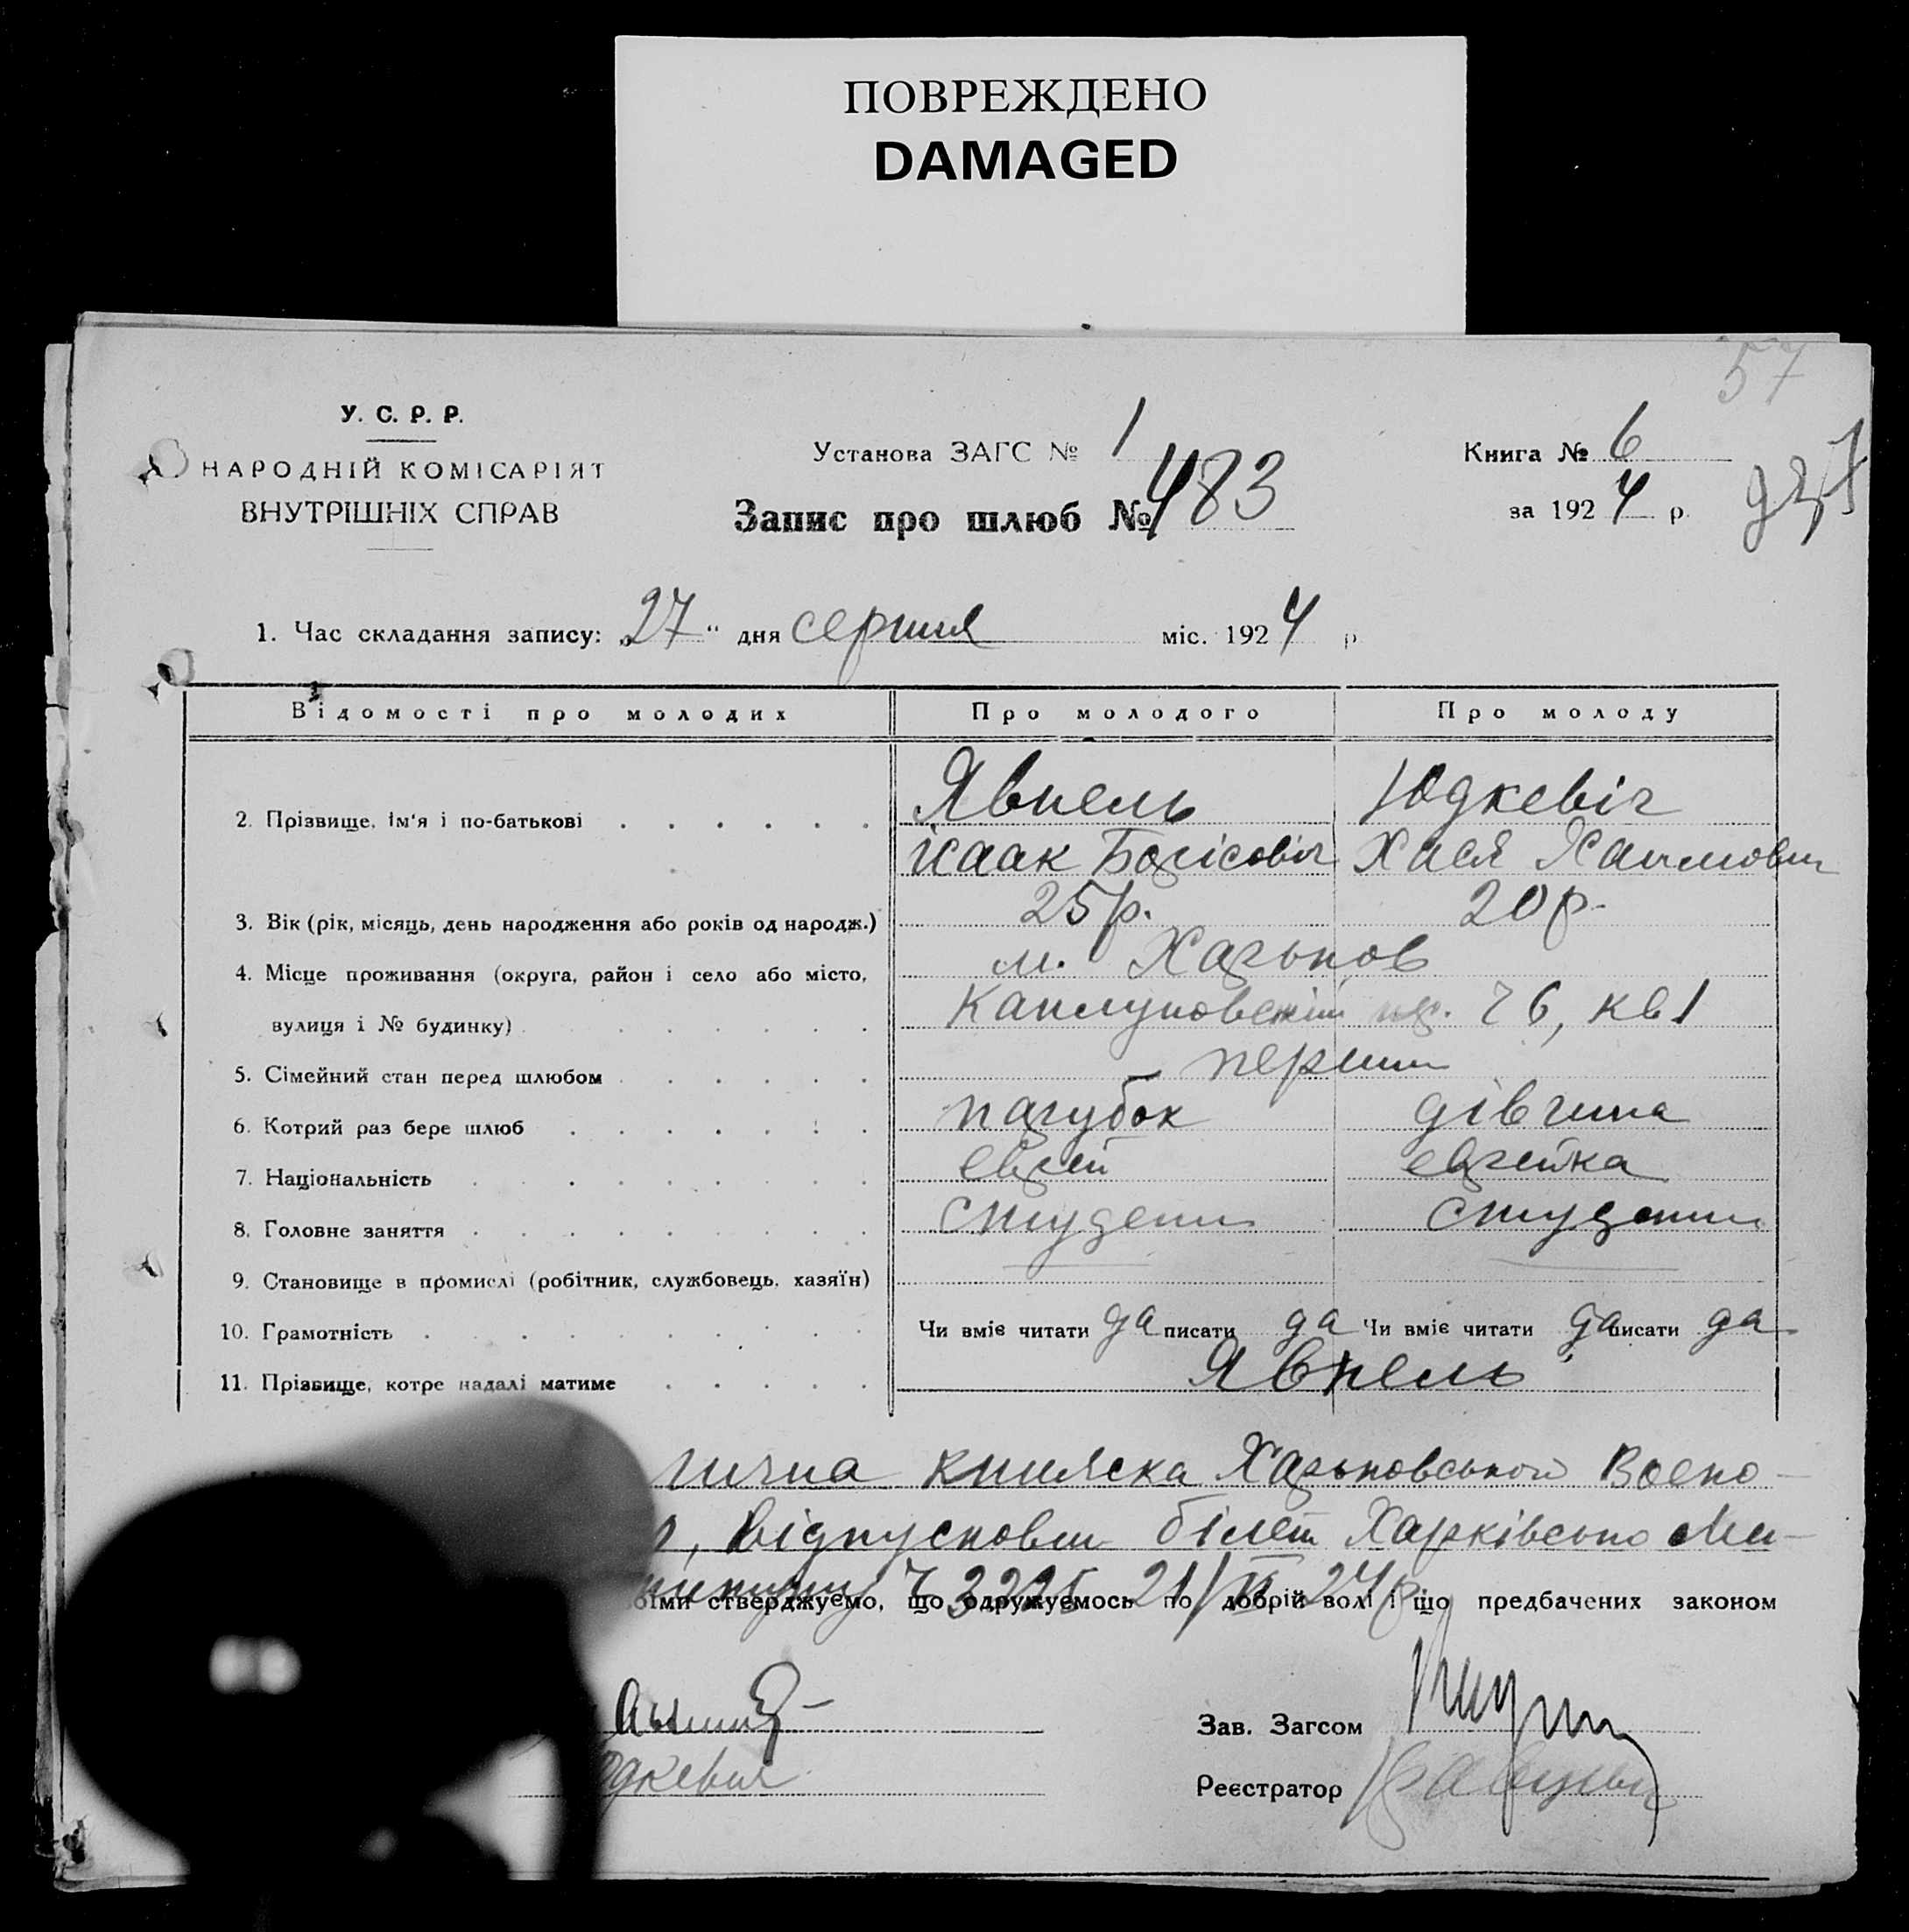 ПОВРЕЖДЕНО
DAMAGED
57
У. С. Р. Р.
НАРОДНІЙ КОМІСАРІЯТ
ВНУТРІШНІХ СПРАВ
Установа ЗАГС № 1
Запис про шлюб № 483
Книга № 6
за 1924 р.
1. Час складання запису: „27“ дня серпня міс. 1924 р
Відомості про молодих Про молодого Про молоду
2. Прізвище, ім'я і по-батькові Явнель Юдкевіч
Ісаак Борісовіч Хася Хаимовн
3. Вік (рік, місяць, день народження або років од народж.) 25 р. 20 р.
4. Місце проживання (округа, район і село або місто, м. Харьков
вулиця і № будинку) 26, кв 1
5. Сімейний стан перед шлюбом перший
6. Котрий раз бере шлюб парубок дівчина
7. Національність еврей еврейка
8. Головне заняття студент студент
9. Становище в промислі (робітник, службовець, хазяїн)
10. Грамотність Чи вміє читати да писати да Чи вміє читати да писати да
11. Прізвище, котре надалі матиме Явнель
книжска Харьковського Воєно-
, Відпускови білет Харківсько
21/VI 24 р
оїми стверджуємо, що одружуємось по добрій волі і що предбачених законом
Зав. Загсом
дкевич
Реєстратор